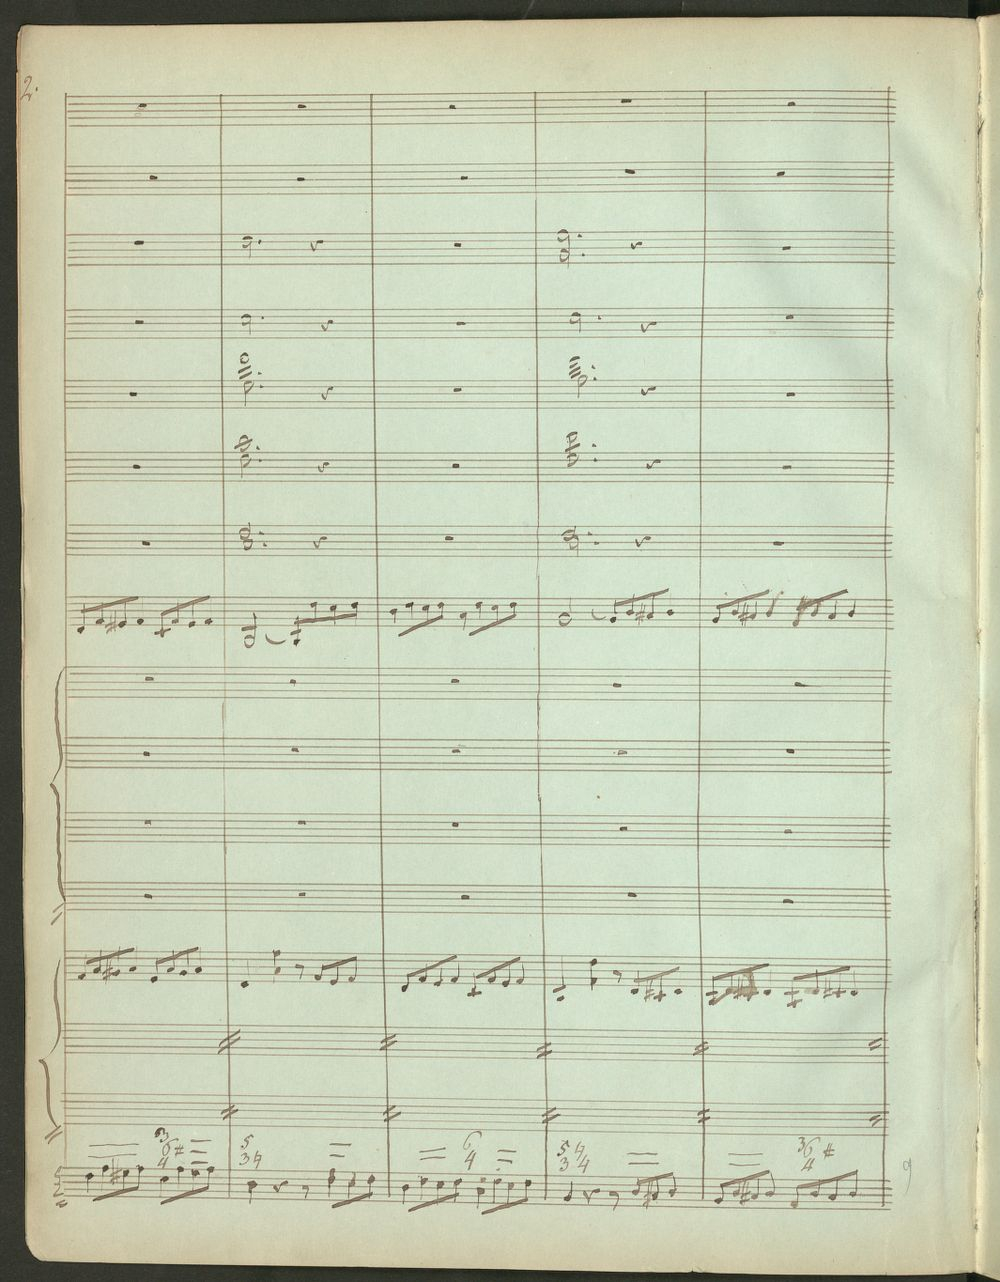 2.
3 5 6 5♮ 3
6♯ 3♮ 4 3♮ 6♯
4 4
9